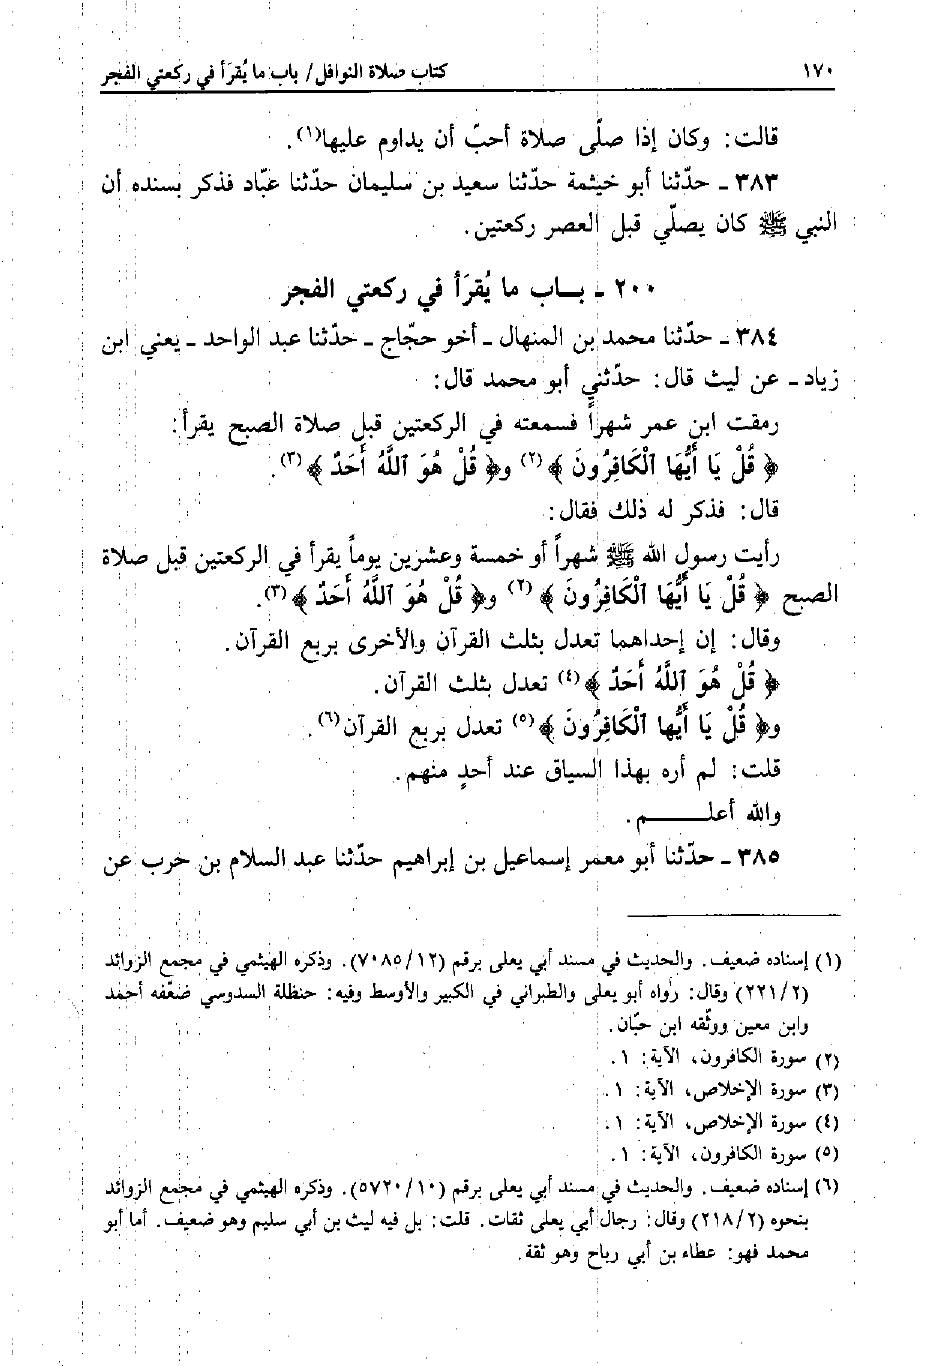 ١٧٠ كتاب صلاة النوافل/ باب ما يُقرَأ في ركعتي الفجر
قالت: وكان إذا صلّى صلاة أحبّ أن يداوم عليها(١).
٣٨٣ ـ حدّثنا أبو خيثمة حدّثنا سعيد بن سليمان حدّثنا عبّاد فذكر بسنده أن
النبي ﷺ كان يصلّي قبل العصر ركعتين.
٢٠٠ ـ بـاب ما يُقرَأ في ركعتي الفجر
٣٨٤ ـ حدّثنا محمد بن المنهال ـ أخو حجّاج ـ حدّثنا عبد الواحد ـ يعني ابن
زياد ـ عن ليث قال: حدّثني أبو محمد قال:
رمقت ابن عمر شهراً فسمعته في الركعتين قبل صلاة الصبح يقرأ:
﴿ قُلْ يَا أَيُّهَا ٱلْكَافِرُونَ ﴾(٢) و﴿ قُلْ هُوَ ٱللَّهُ أَحَدٌ ﴾(٣).
قال: فذكر له ذلك فقال:
رأيت رسول الله ﷺ شهراً أو خمسة وعشرين يوماً يقرأ في الركعتين قبل صلاة
الصبح ﴿ قُلْ يَا أَيُّهَا ٱلْكَافِرُونَ ﴾(٢) و﴿ قُلْ هُوَ ٱللَّهُ أَحَدٌ ﴾(٣).
وقال: إن إحداهما تعدل بثلث القرآن والأخرى بربع القرآن.
﴿ قُلْ هُوَ ٱللَّهُ أَحَدٌ ﴾(٤) تعدل بثلث القرآن.
و﴿ قُلْ يَا أَيُّهَا ٱلْكَافِرُونَ ﴾(٥) تعدل بربع القرآن(٦).
قلت: لم أره بهذا السياق عند أحدٍ منهم.
والله أعلـــــم.
٣٨٥ ـ حدّثنا أبو معمر إسماعيل بن إبراهيم حدّثنا عبد السلام بن حرب عن
(١) إسناده ضعيف. والحديث في مسند أبي يعلى برقم (٧٠٨٥/١٢). وذكره الهيثمي في مجمع الزوائد
(٢٢١/٢) وقال: رواه أبو يعلى والطبراني في الكبير والأوسط وفيه: حنظلة السدوسي ضعّفه أحمد
وابن معين ووثّقه ابن حبّان.
(٢) سورة الكافرون، الآية: ١.
(٣) سورة الإخلاص، الآية: ١.
(٤) سورة الإخلاص، الآية: ١.
(٥) سورة الكافرون، الآية: ١.
(٦) إسناده ضعيف. والحديث في مسند أبي يعلى برقم (٥٧٢٠/١٠). وذكره الهيثمي في مجمع الزوائد
بنحوه (٢١٨/٢) وقال: رجال أبي يعلى ثقات. قلت: بل فيه ليث بن أبي سليم وهو ضعيف. أما أبو
محمد فهو: عطاء بن أبي رباح وهو ثقة.